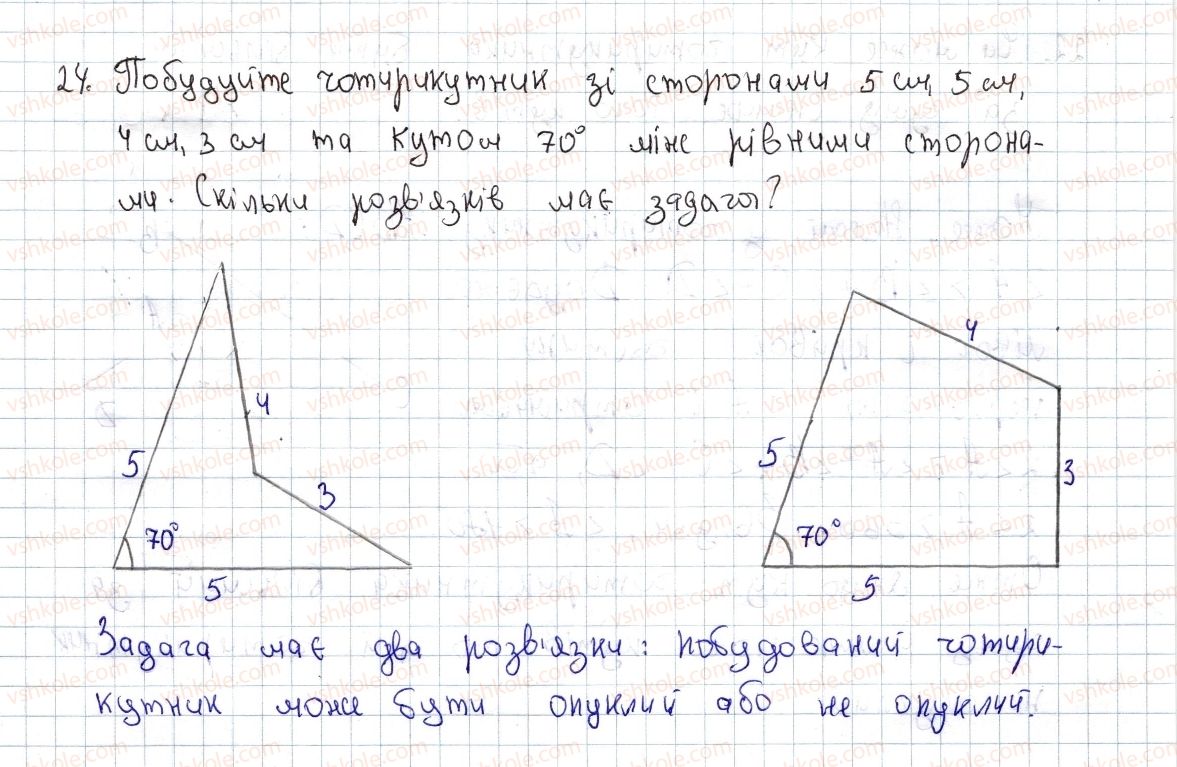 24. Побудуйте чотирикутник зі сторонами 5 см, 5 см,
4 см, 3 см та кутом 70° між рівними сторона-
ми. Скільки розв'язків має задача?
4
4
5
3
5
3
70°
70°
5
5
Задача має два розв'язки: побудований чотири-
кутник може бути опуклий або не опуклий.